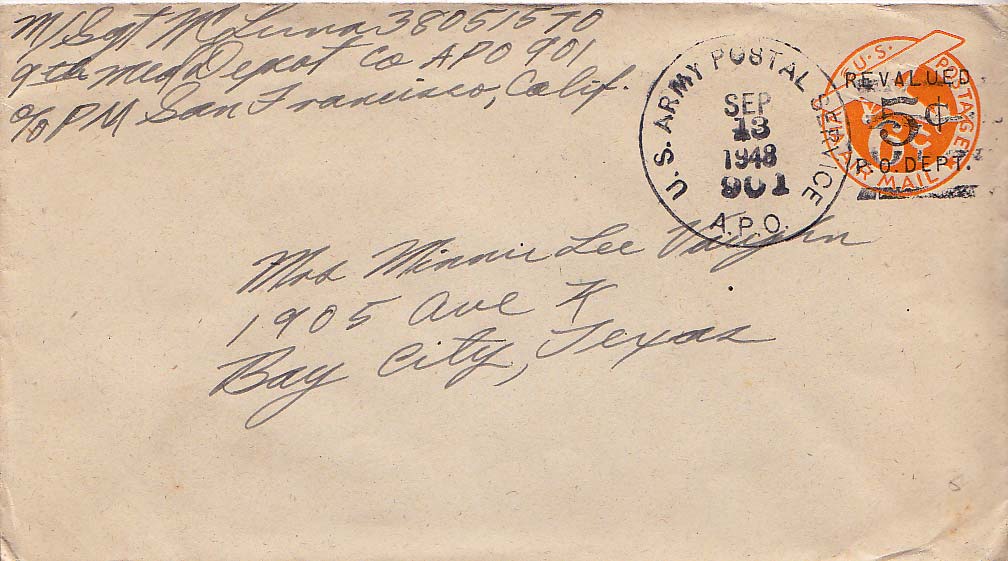 M/Sgt M Luna 38051570
9th Med Depot Co APO 901
c/o PM San Francisco, Calif.
U.S. ARMY POSTAL SERVICE
SEP
13
1948
901
A.P.O.
U.S. POSTAGE
REVALUED
5¢
P.O. DEPT.
AIR MAIL
Mrs Minnie Lee Vaughn
1905 Ave K
Bay City, Texas